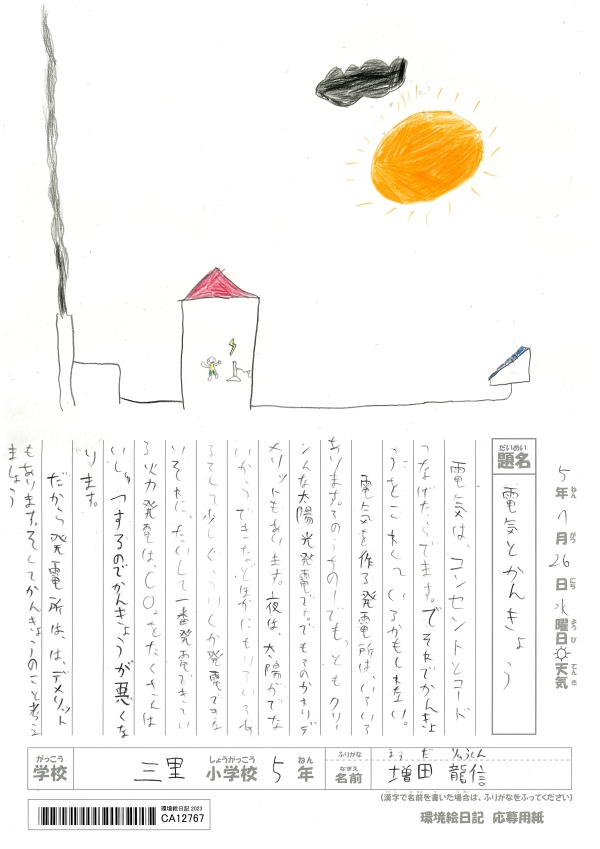 5年ねん7月がつ26日にち水曜日ようび☼天気てんき
題名だいめい 電気とかんきょう
電気は、コンセントとコード
つなげたらでます。でそれでかんきょ
うをこわしているかもしれない。
電気を作る発電所は、いろいろ
あります。そのーつの一つでも、ともクリー
ンんな太陽光発電です。でもそのかわりデ
メリットもあります。夜は、太陽がでな
いからできたなどほかにもりろいろあ
るそして少しぐらいしか発電できな
いそれに、たいして一番発電できてい
る火力発電は、CO₂をたくさんは
いしゅつするのでかんきょうが悪くな
ります。
だから発電所は、は、デメリット
もあります。そしてかんきょうのこと考え
ましょう
学校がっこう 三里 小学校しょうがっこう 5年ねん 名前なまえ ふりがな 増田 龍信 ますだ りゅうしん
(漢字で名前を書いた場合は、ふりがなをふってください)
環境絵日記 2023
CA12767
環境絵日記 応募用紙